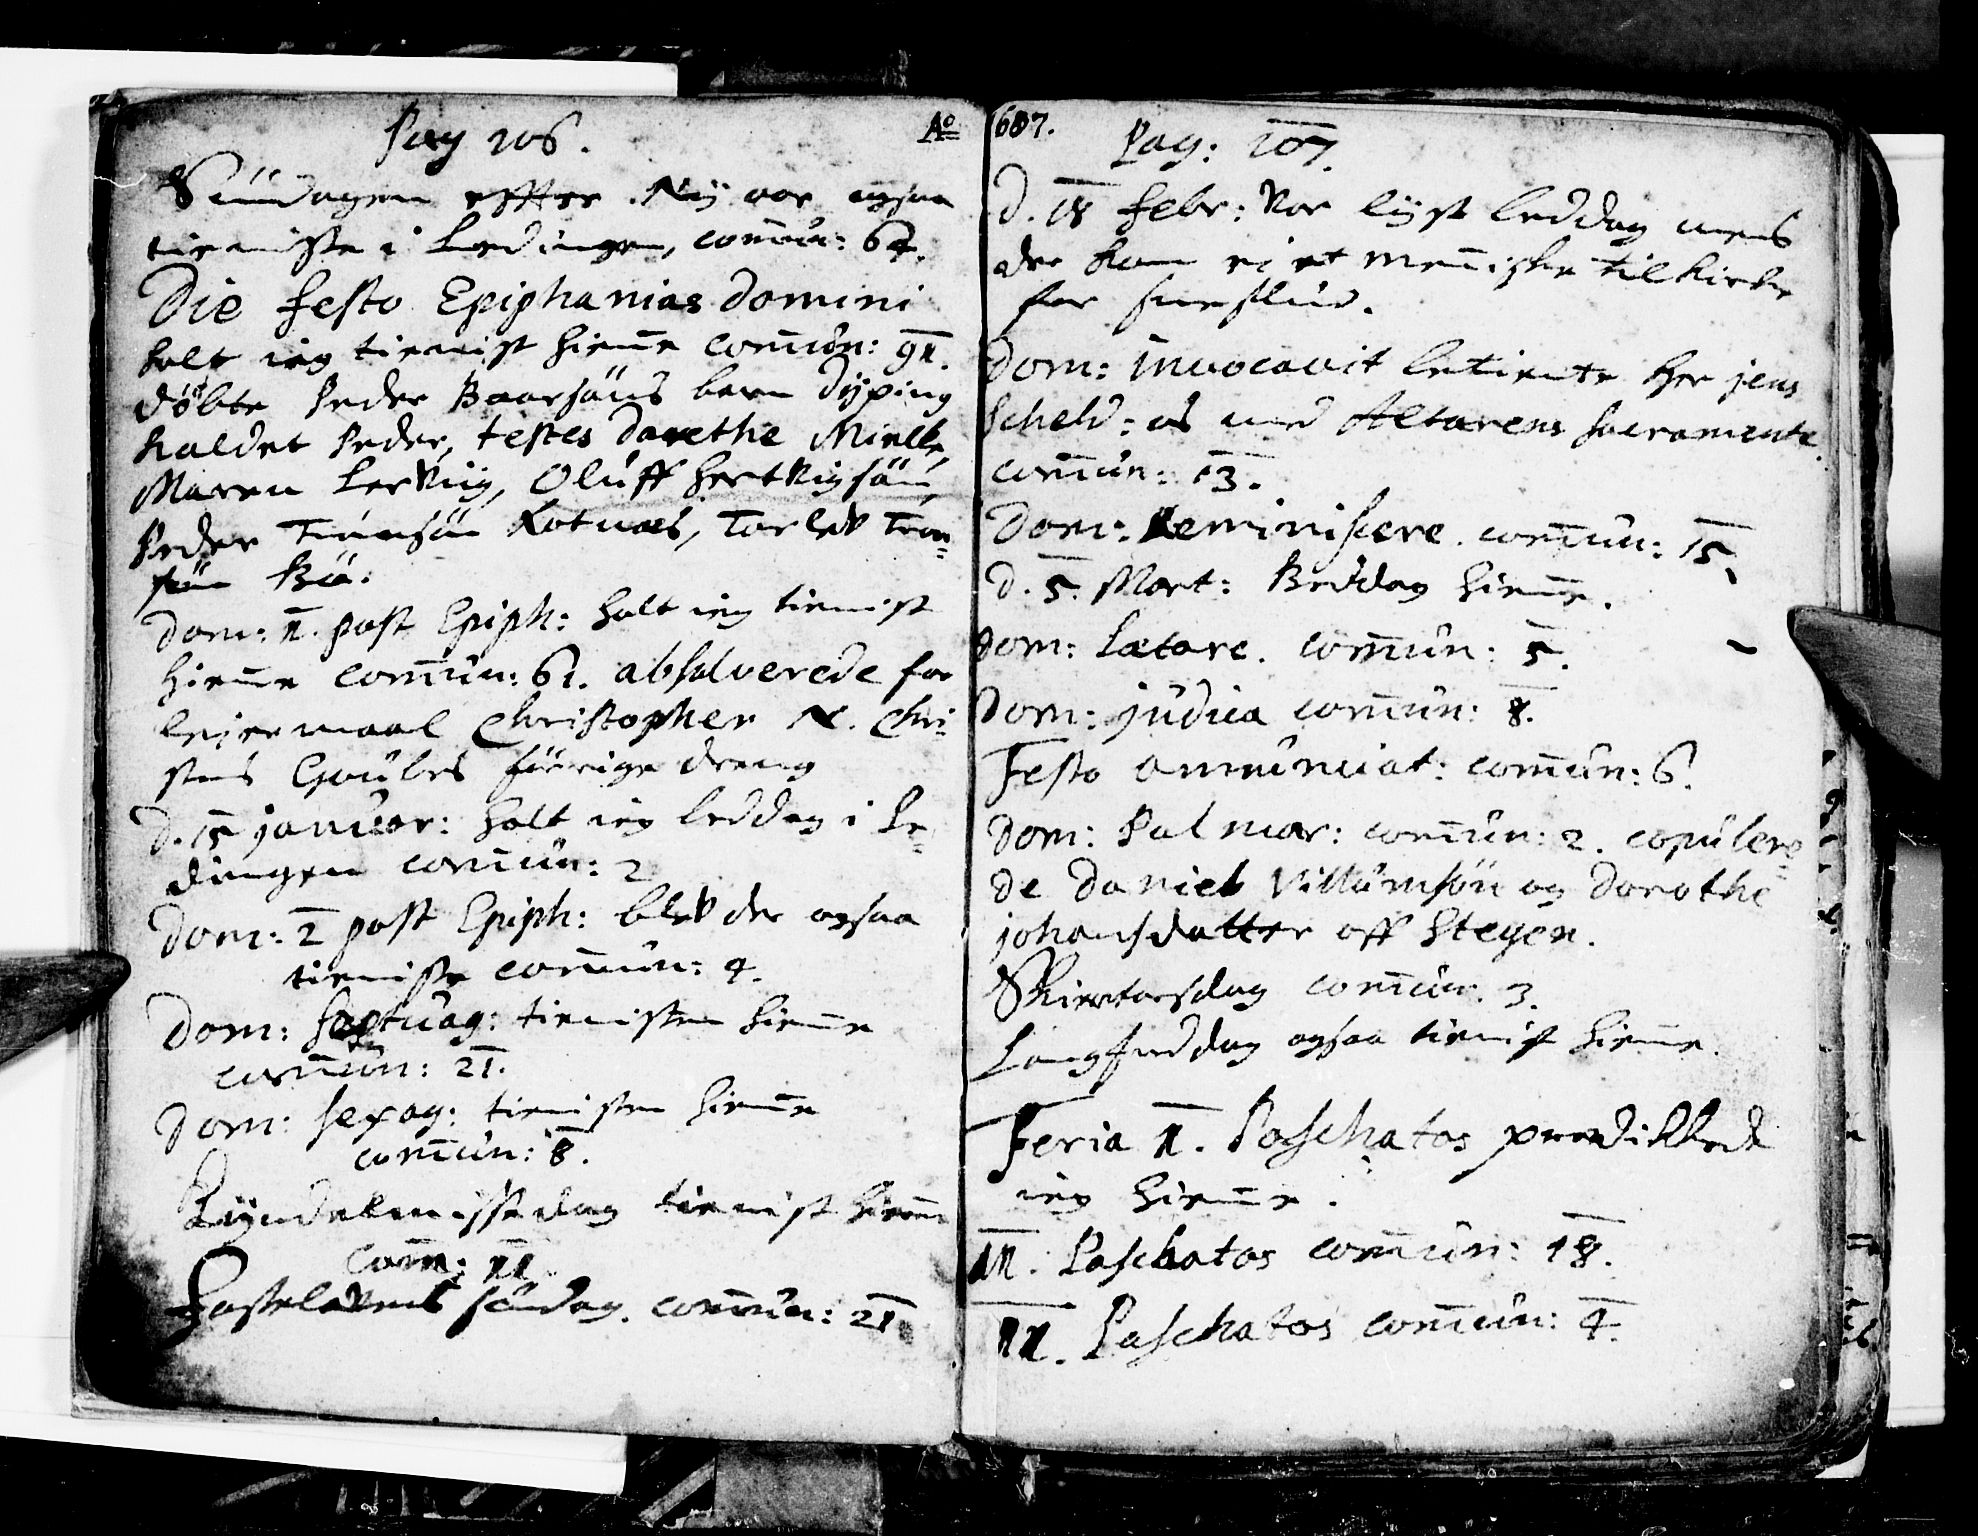 Pag 106.
Söndagen effter Nÿ aar ogsaa
tienniste i Lødingen, com̄ūn: 64.
Die festo Epiphanias Domini
holt ieg tienist hiem̄e com̄ūn: 91.
döbte Peder Baarsöns barn Dÿping
kaldet Peder, testes Dorethe Mielle,
Maren Lerviig, Olūff Hertvigsön,
Peder Timmsön Kotnæs, Torlev Tron=
sön Bö.
Dom: 1. post Epiph: holt ieg tienist
hiem̄e com̄ūn: 61. absolverede for
leiermaal Christopher N. Chri=
stens Gaūbes förrige dreng
D. 15 janūar: holt ieg beddag i Lø=
dingen com̄ūn: 2
Dom: 2 post Epiph: blev der ogsaa
tienniste com̄ūn: 4.
Dom: septūag: tienisten hiem̄e
com̄ūn: 21.
Dom: sexag: tienisten hiem̄e
com̄ūn: 8.
Kÿndelmissedag tienist hiem̄e
com̄: 11
Fastelavens söndag. com̄ūn: 21
Aº 687.
Pag: 107.
D. 18 Febr: var lÿst beddag mens
der kom ej et men̄iske til kirke
for sneflūd.
Dom: invocavit betiente Her jens
Scheld: os med Altarens sacramente.
com̄ūn: 13.
Dom: Reminiscere. com̄ūn: 15.
D. 5. Mart: Beddag hiem̄e.
Dom: Lætare. com̄ūn: 5.
Dom: jūdica com̄ūn: 8.
Festo annūnciat: com̄ūn: 6.
Dom: Palmar: com̄ūn: 2. copūlere=
de Daniel Villūmsön og Dorothe
johansdatter off Stegen.
Skiertorsdag com̄ūn. 3.
Langfreddag ogsaa tienist hiem̄e.
Feria 1. Paschatos prædikkede
ieg hiem̄e.
II. Paschatos com̄ūn: 18.
III. Paschatos com̄ūn: 4.